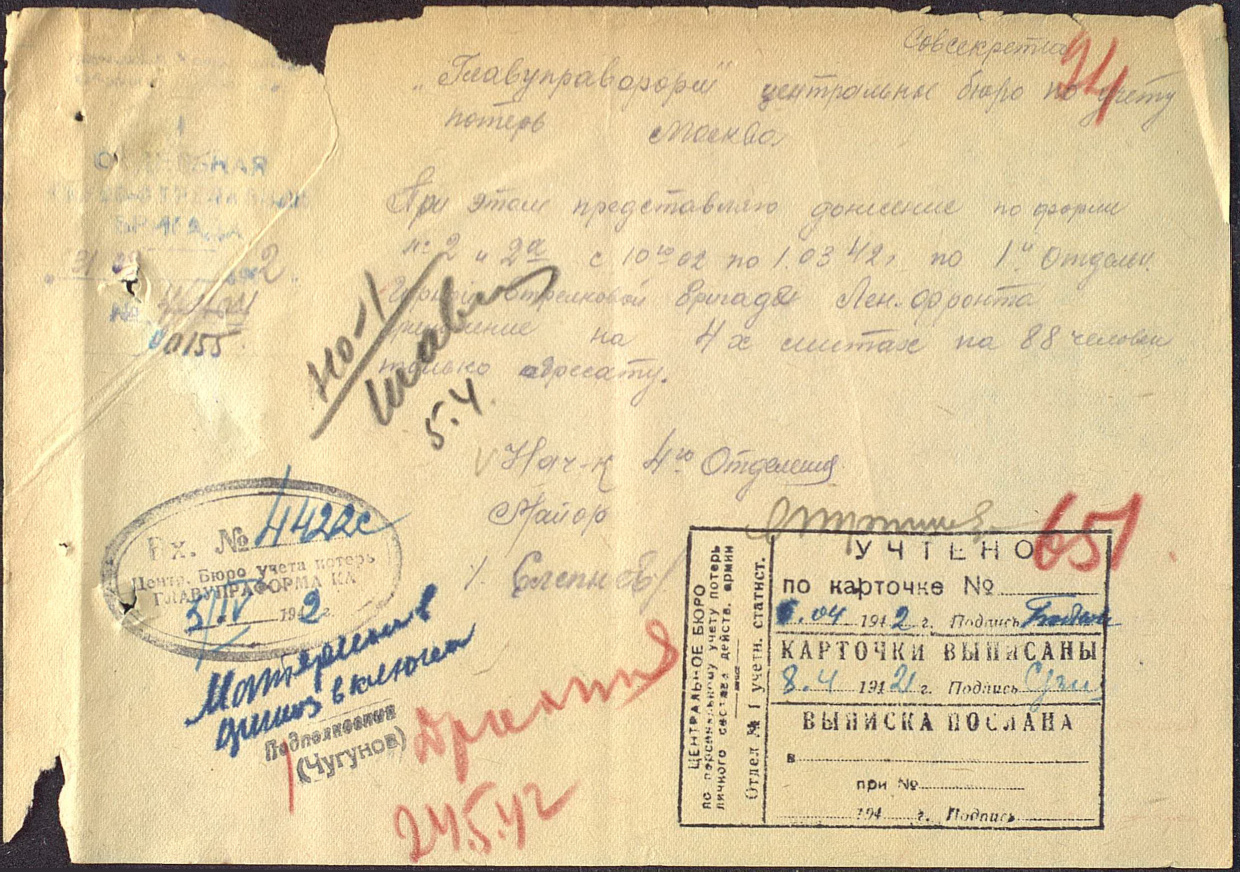 Совсекретно
24
„Главупраформ" центральное бюро по учету
потерь Москва
1
ОТДЕЛЬНАЯ
БРИГАДА
При этом представляю донесение по форме
№ 2 и 2а с 10го 02 по 1.03 42г. по 1й Отдельн.
стрелковой бригады Лен. Фронта
на 4х листах на 88 человек
только адресату.
31 2
№
0155
НО-1
5.4.
Нач-к 4го Отделения
Майор
651
Вх. № 4422с
Центр. Бюро учета потерь
ГЛАВУПРАФОРМА КА
5/IV 1942
Материал в
включен
Подполковник
(Чугунов)
24.5.42
ЦЕНТРАЛЬНОЕ БЮРО
по персональному учету потерь
личного состава действ. армии
Отдел № 1 учетн. статист.
УЧТЕНО
по карточке №
6.04 1942 г. Подпись
КАРТОЧКИ ВЫПИСАНЫ
8.4 1942 г. Подпись
ВЫПИСКА ПОСЛАНА
в
при №
194 г. Подпись